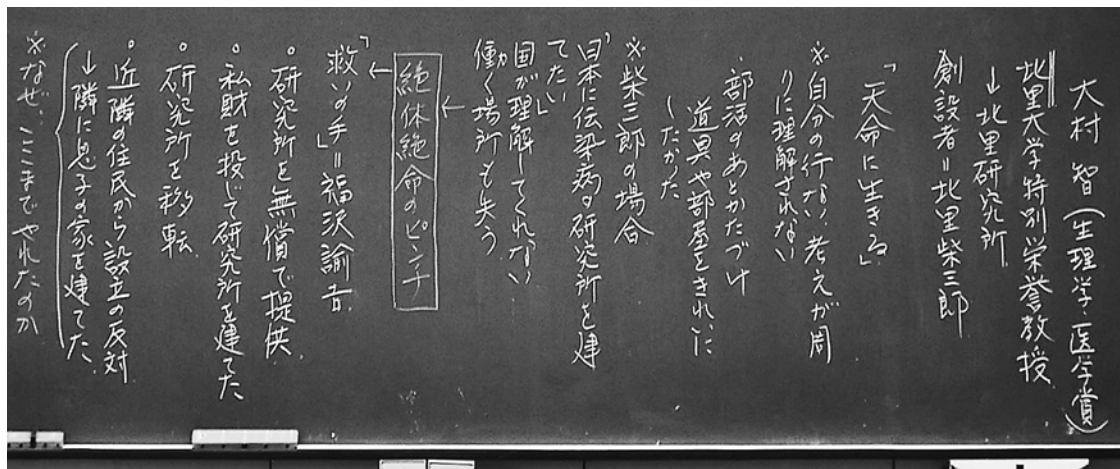 大村 智(生理学・医学賞)
北里大学特別栄誉教授
↓北里研究所
創設者=北里柴三郎
「天命に生きる」
※自分の行ない、考えが周
りに理解されない
・部活のあとかたづけ
道具や部屋をきれいに
したかった
※柴三郎の場合
「日本に伝染病の研究所を建
てたい」
国が理解してくれない
働く場所も失う
↓
絶体絶命のピンチ
↓
「救いの手」=福沢諭吉
。研究所を無償で提供
。私財を投じて研究所を建てた
。研究所を移転
。近隣の住民から設立の反対
↓隣に息子の家を建てた
※なぜ、ここまでやれたのか